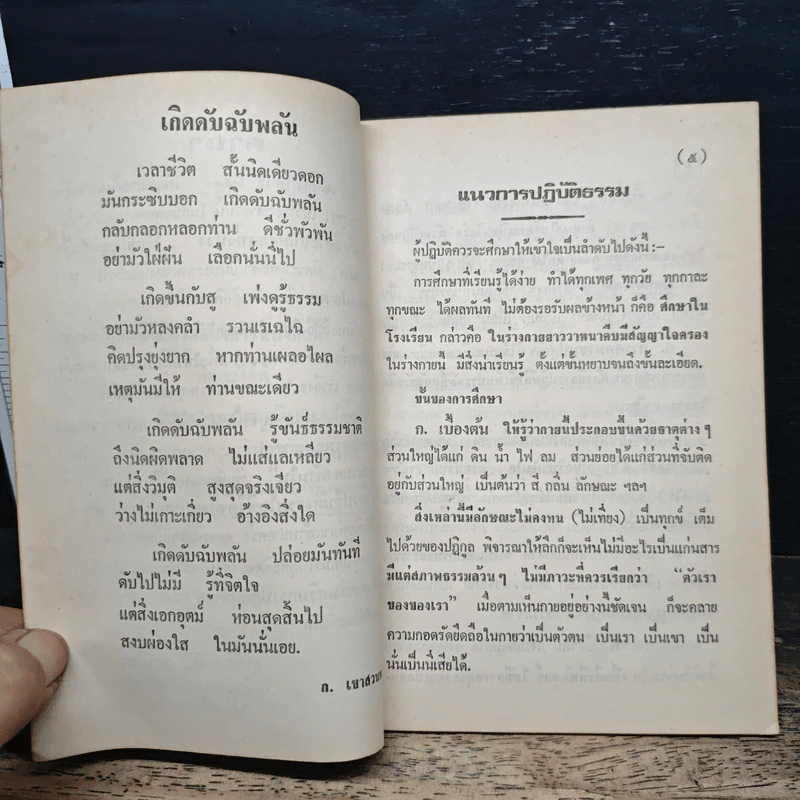 เกิดดับฉับพลัน
เวลาชีวิต สั้นนิดเดียวดอก
มันกระซิบบอก เกิดดับฉับพลัน
กลับกลอกหลอกท่าน ดีชั่วพัวพัน
อย่ามัวใฝ่ฝัน เลือกนั่นนี่ไป
เกิดขึ้นกับสู เพ่งดูรู้ธรรม
อย่ามัวหลงคลำ รวนเรเฉไฉ
คิดปรุงยุ่งยาก หากท่านเผลอไผล
เหตุมันมีให้ ท่านขณะเดียว
เกิดดับฉับพลัน รู้ขันธ์ธรรมชาติ
ถึงนิดผิดพลาด ไม่แส่แลเหลียว
แต่สิ่งวิมุติ สูงสุดจริงเจียว
ว่างไม่เกาะเกี่ยว อ้างอิงสิ่งใด
เกิดดับฉับพลัน ปล่อยมันทันที
ดับไปไม่มี รู้ที่จิตใจ
แต่สิ่งเอกอุตม์ ห่อนสุดสิ้นไป
สงบผ่องใส ในมันนั่นเอย.
ก. เขาสวน
(๕)
แนวการปฏิบัติธรรม
ผู้ปฏิบัติควรจะศึกษาให้เข้าใจเป็นลำดับไปดังนี้ :-
การศึกษาที่เรียนรู้ได้ง่าย ทำได้ทุกเพศ ทุกวัย ทุกกาละ
ทุกขณะ ได้ผลทันที ไม่ต้องรอรับผลข้างหน้า ก็คือ ศึกษาใน
โรงเรียน กล่าวคือ ในร่างกายยาววาหนาคืบมีสัญญาใจครอง
ในร่างกายนี้ มีสิ่งน่าเรียนรู้ ตั้งแต่ขั้นหยาบจนถึงขั้นละเอียด.
ขั้นของการศึกษา
ก. เบื้องต้น ให้รู้ว่ากายนี้ประกอบขึ้นด้วยธาตุต่าง ๆ
ส่วนใหญ่ได้แก่ ดิน น้ำ ไฟ ลม ส่วนย่อยได้แก่ส่วนที่จับติด
อยู่กับส่วนใหญ่ เป็นต้นว่า สี กลิ่น ลักษณะ ฯลฯ
สิ่งเหล่านี้มีลักษณะไม่คงทน (ไม่เที่ยง) เป็นทุกข์ เต็ม
ไปด้วยของปฏิกูล พิจารณาให้ลึกก็จะเห็นไม่มีอะไรเป็นแก่นสาร
มีแต่สภาพธรรมล้วน ๆ ไม่มีภาวะที่ควรเรียกว่า "ตัวเรา
ของของเรา" เมื่อตามเห็นกายอยู่อย่างนี้ชัดเจน ก็จะคลาย
ความกอดรัดยึดถือในกายว่าเป็นตัวตน เป็นเรา เป็นเขา เป็น
นั่นเป็นนี่เสียได้.